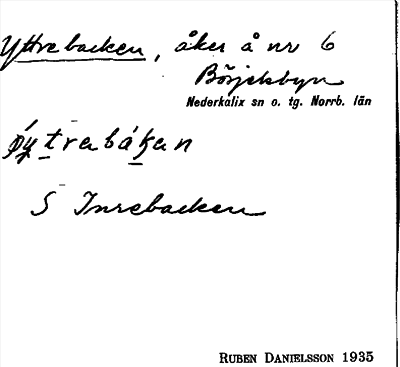 Yttrebacken, åker å nr 6
Börjelsbyn
Nederkalix sn o. tg. Norrb. län
S Inrebacken
RUBEN DANIELSSON 1935